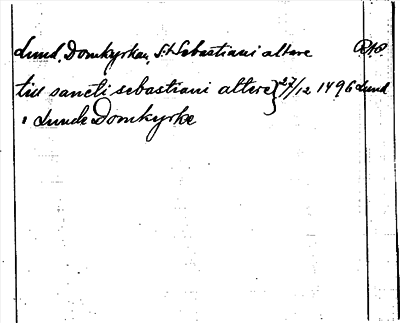 Lund, Domkyrkan, S:t Sebastiani altare
till sancti sebastiani altere } 27/12 1496 Lund
i Lunde Domkyrke